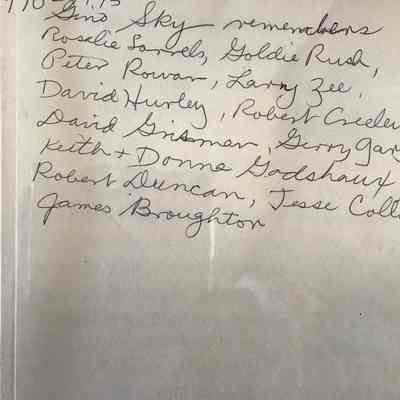 Gino Sky remembers
Rosalie Sorrels, Goldie Rush,
Peter Rowan, Larry Zee,
David Hurley, Robert Creele
David Grisman, Gerry Gar
Keith + Donna Godshaux
Robert Duncan, Jesse Coll
James Broughton